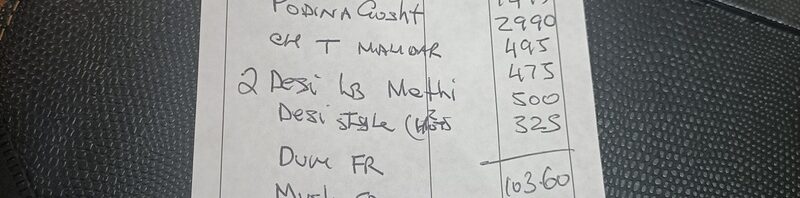 PODINA Gosht
2990
CH T MALIDAR 495
475
2 Desi LB Methi 500
Desi style 325
FR
103.60